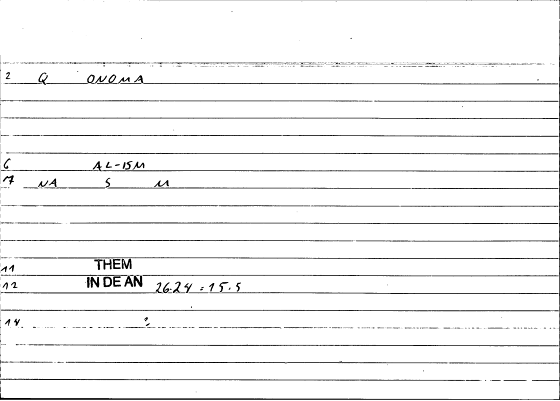 2 Q ONOMA
6 AL-ISM
17 NA S M
11 THEM
12 IN DE AN 26.24 = 15.5
14